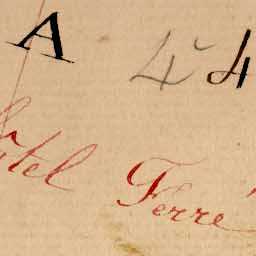 A 44
tel Ferré